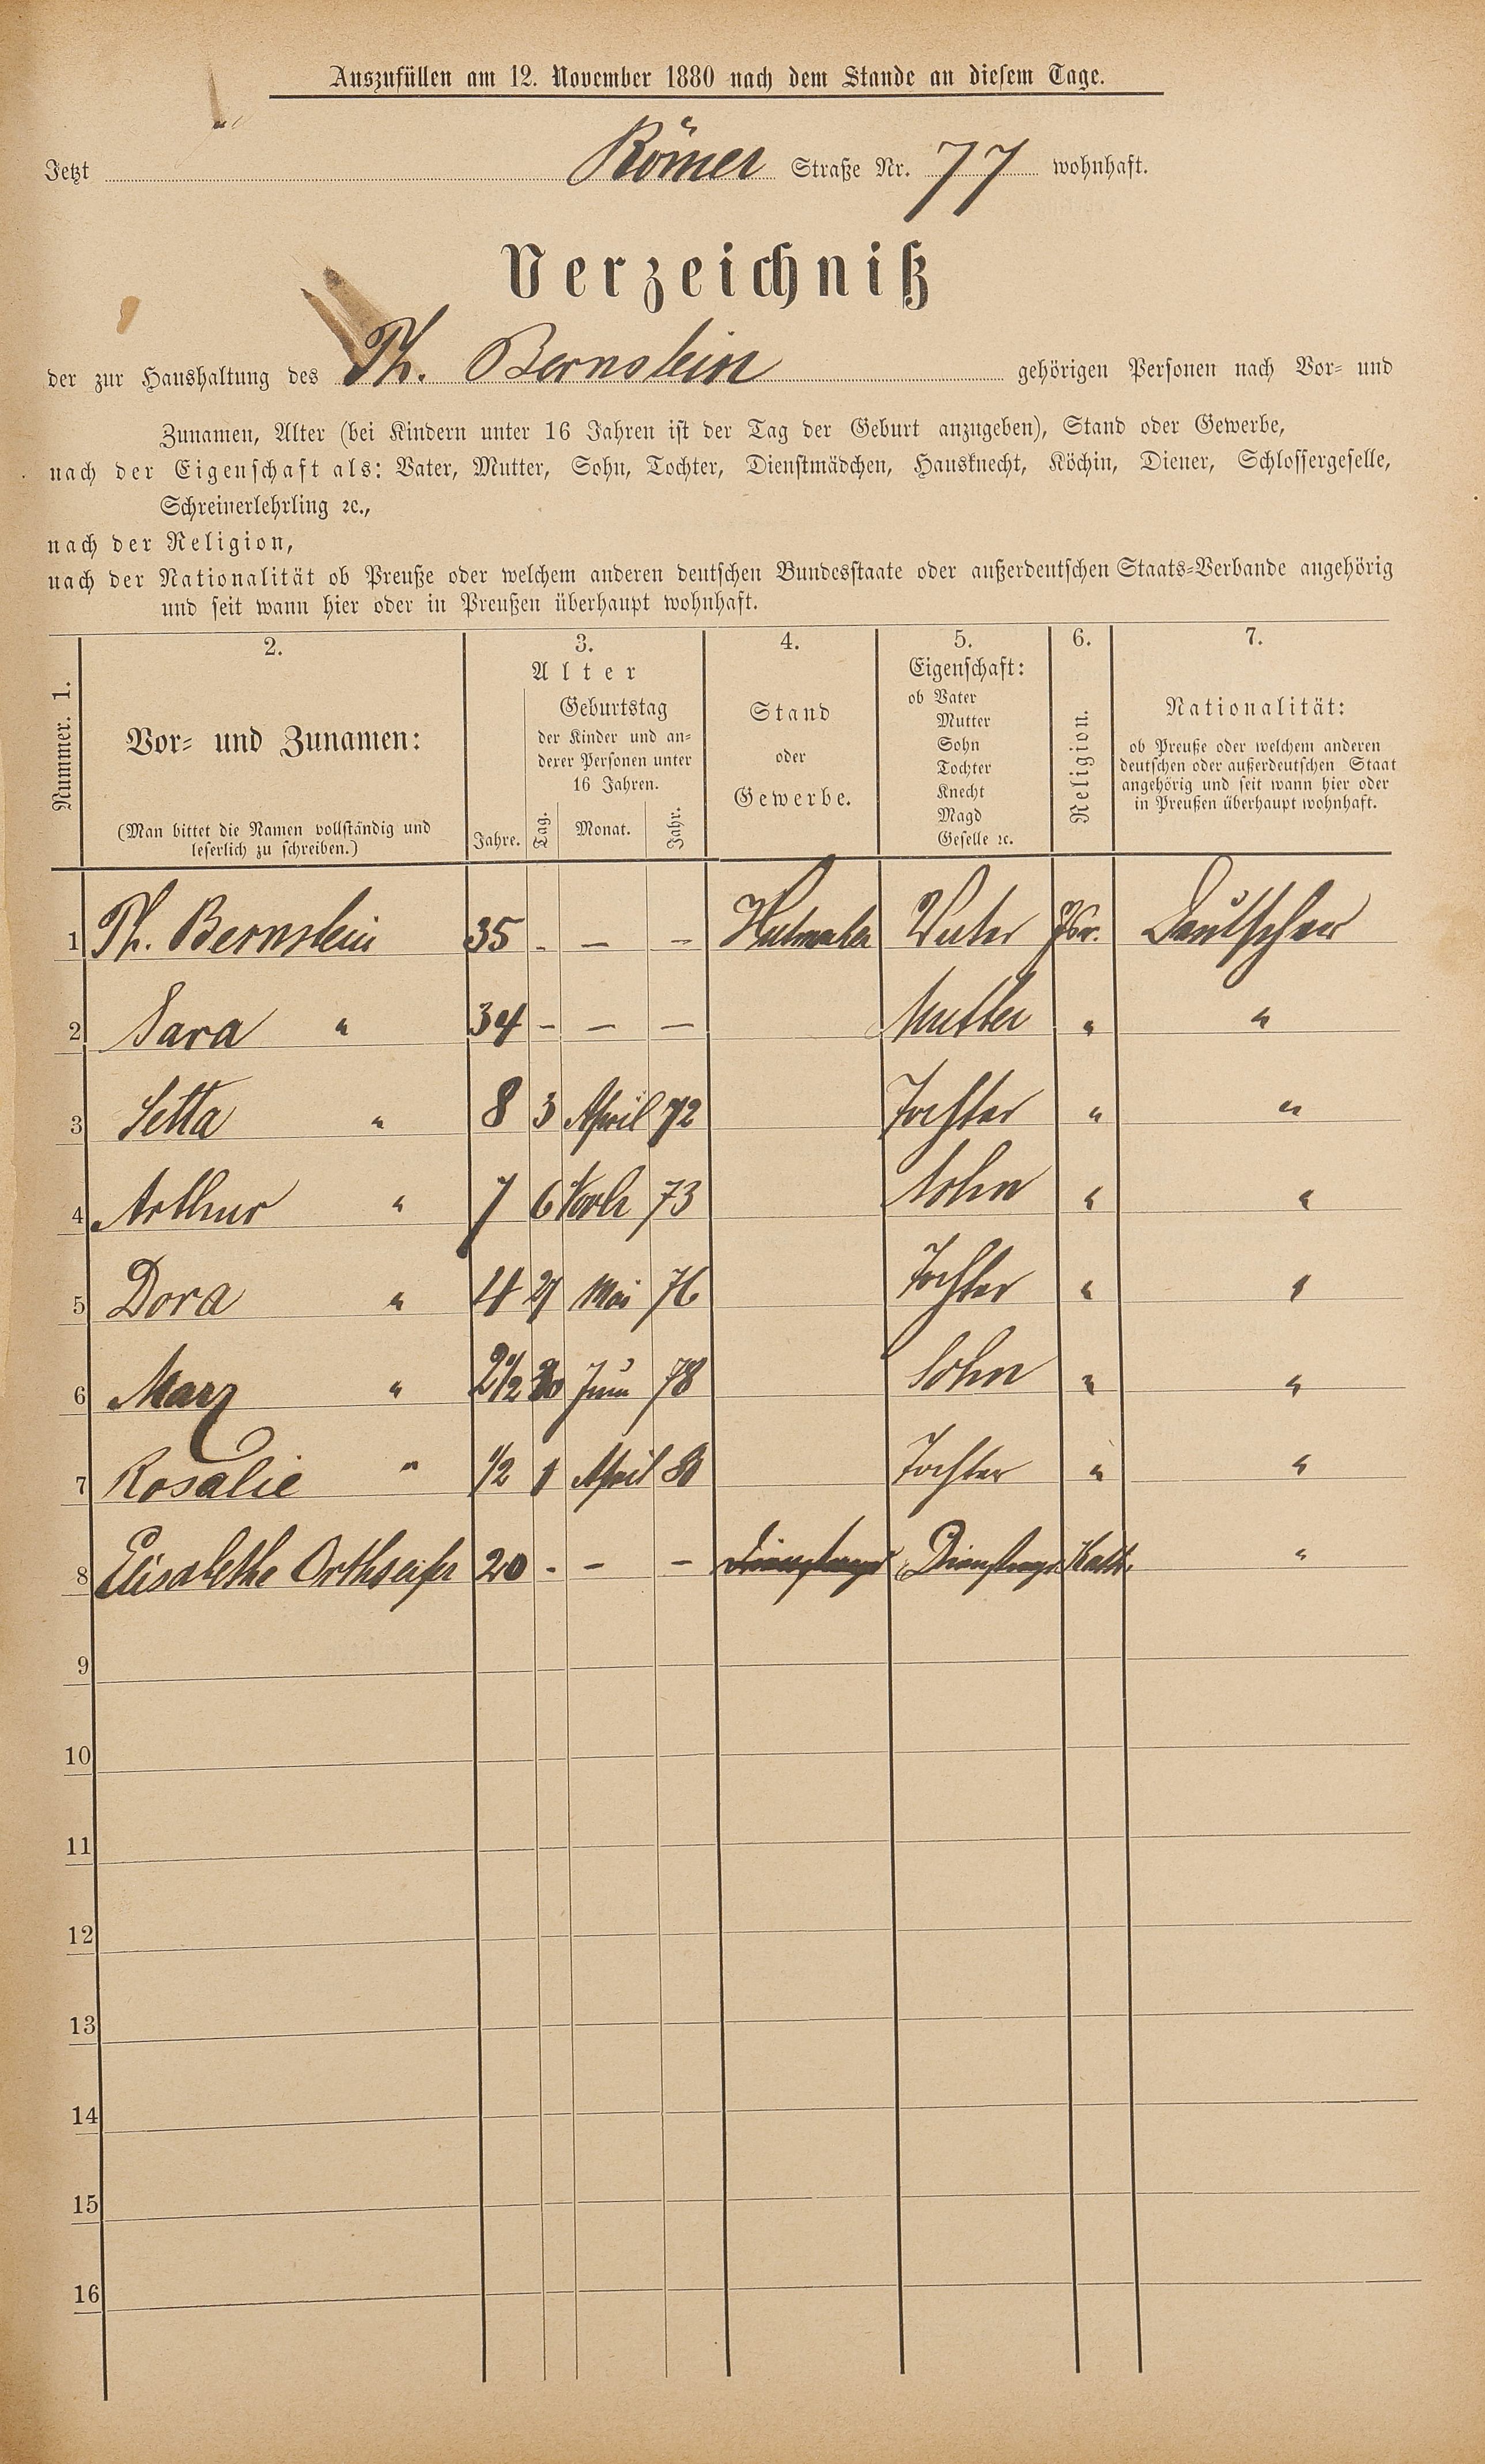 Auszufüllen am 12. November 1880 nach dem Stande an diesem Tage.
Jetzt Römer Straße Nr. 77 wohnhaft.
Verzeichniß
der zur Haushaltung des Th. Bernstein gehörigen Personen nach Vor- und
Zunamen, Alter (bei Kindern unter 16 Jahren ist der Tag der Geburt anzugeben), Stand oder Gewerbe,
nach der Eigenschaft als: Vater, Mutter, Sohn, Tochter, Dienstmädchen, Hausknecht, Köchin, Diener, Schlossergeselle,
Schreinerlehrling ꝛc.,
nach der Religion,
nach der Nationalität ob Preuße oder welchem anderen deutschen Bundesstaate oder außerdeutschen Staats-Verbande angehörig
und seit wann hier oder in Preußen überhaupt wohnhaft.
Nummer. 1.
2.
Vor- und Zunamen:
(Man bittet die Namen vollständig und
leserlich zu schreiben.)
3.
Alter
Jahre.
Geburtstag
der Kinder und an-
derer Personen unter
16 Jahren.
Tag. Monat. Jahr.
4.
Stand
oder
Gewerbe.
5.
Eigenschaft:
ob Vater
Mutter
Sohn
Tochter
Knecht
Magd
Geselle ꝛc.
6.
Religion.
7.
Nationalität:
ob Preuße oder welchem anderen
deutschen oder außerdeutschen Staat
angehörig und seit wann hier oder
in Preußen überhaupt wohnhaft.
1 Th. Bernstein 35 - - - Vater Isr. Deutscher
2 Sara " 34 - - - Mutter " "
3 Setta " 8 3 April 72 Tochter " "
4 Arthur " 7 6 73 Sohn " "
5 Dora " 4 Mai 76 Tochter " "
6 Marx " 2 1/2 Juni 78 Sohn " "
7 Rosalie " 1/2 1 April 80 Tochter " "
8 Elisabethe Orthseifer 20 - - - Dienstmagd Dienstmagd Kath. "
9
10
11
12
13
14
15
16